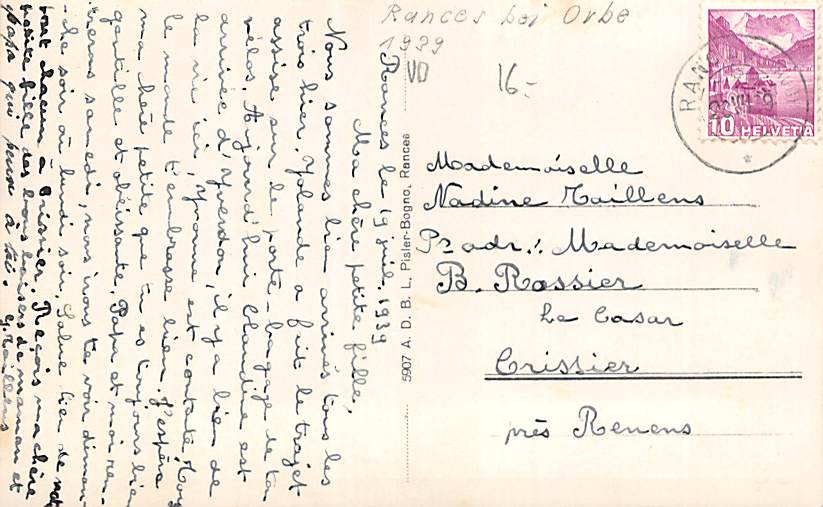 Rances bei Orbe
1939
VD
16.-
RANCES
10 HELVETIA
Rances le 19 juil. 1939
Ma chère petite fille,
Nous sommes bien arrivés tous les
trois hier. Yolande a fait le trajet
assise sur le porte-bagage de ton
vélos. Aujourd'hui Claudine est
arrivée d'Yverdon, il y a bien de
la vie ici, Yvonne est contente. Tout
le monde t'embrasse bien. J'espère
ma chère petite que tu es toujours bien
gentille et obéissante. Papa et moi ren-
trerons samedi, nous irons te voir diman-
che soir ou lundi soir. Salue bien de not
tout chacun à Crissier. Reçois ma chère
petite fille des bons baisers de maman et
papa qui pense à toi. Y. Taillens
5907 A. D. B. L. Pisler-Bogno, Rances
Mademoiselle
Nadine Taillens
Pr adr.: Mademoiselle
B. Rossier
Le Casar
Crissier
près Renens